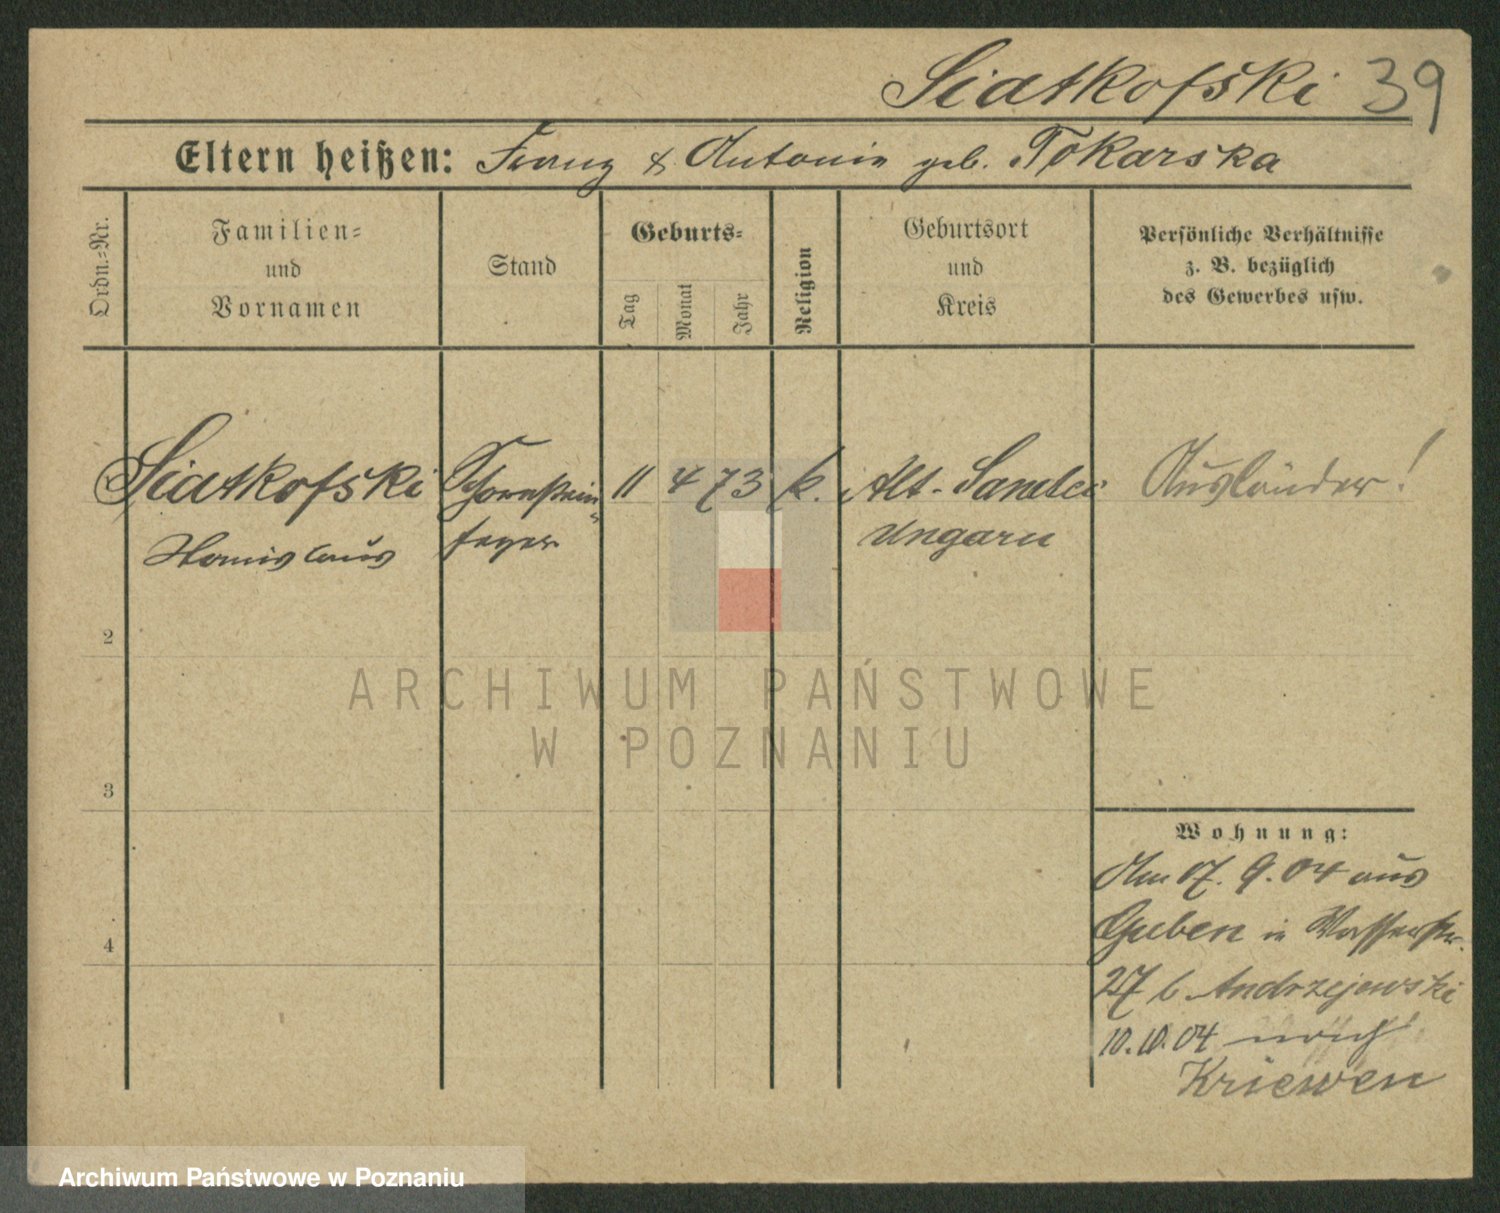 Siatkofski 39
Eltern heißen: Franz & Antonie geb. Tokarska
Ordn.-Nr.
Familien-
und
Vornamen
Stand
Geburts-
Tag
Monat
Jahr
Religion
Geburtsort
und
Kreis
Persönliche Verhältnisse
z. B. bezüglich
des Gewerbes usw.
Siatkofski
Stanislaus
Schornstein-
feger
11 4 73 k.
Alt-Sandec
Ungarn
Ausländer!
2
3
4
Wohnung:
Am 17. 9. 04 aus
Guben in Wasserstr.
27 b Andrzejewski
10. 10. 04 nach
Kriewen
ARCHIWUM PAŃSTWOWE
W POZNANIU
Archiwum Państwowe w Poznaniu